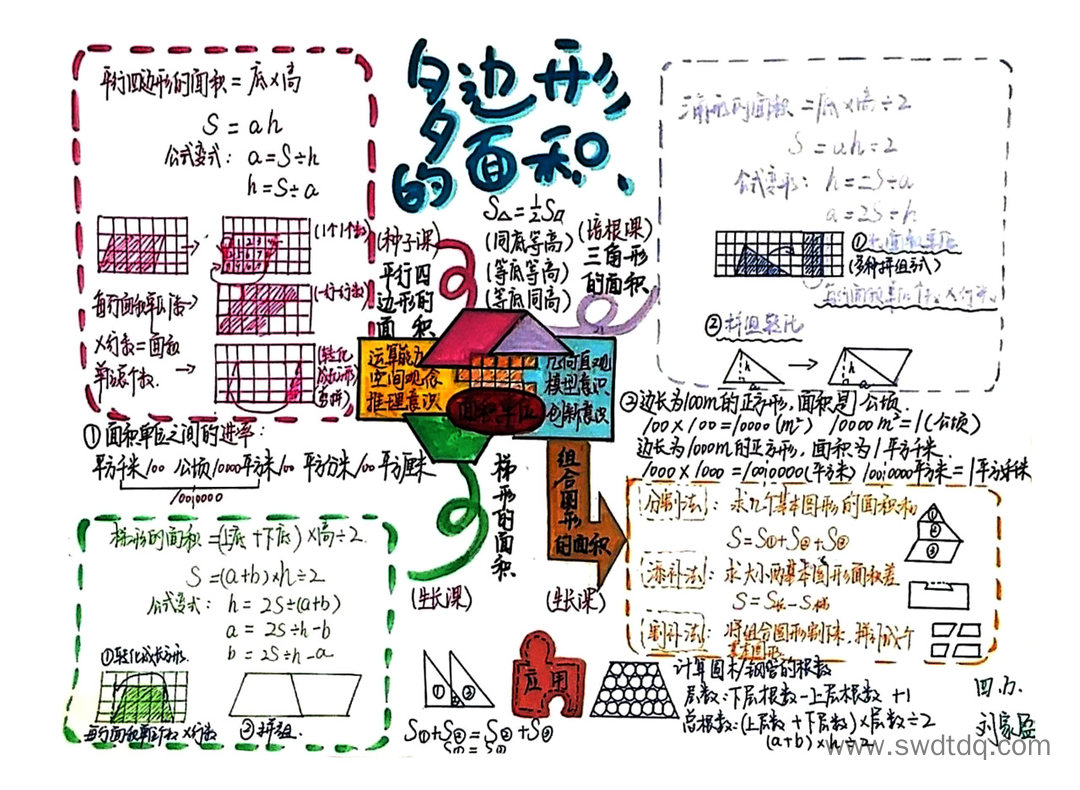 多边形
的面积
平行四边形的面积=底×高
S=ah
公式变式: a=S÷h
h=S÷a
(1个1个数)
每行面积单位个数→
×行数=面积
单位个数. →
(一行一行数)
①面积单位之间的进率:
平方千米 100 公顷 10000 平方米 100 平方分米 100 平方厘米
1000000
(种子课)
平行四
边形的
面积
S△=½S▱
(同底等高)
(等底等高)
(等底同高)
(培根课)
三角形
的面积
运算能力
空间观念
推理意识
几何直观
模型意识
创新意识
面积单位
三角形的面积=底×高÷2
S=ah÷2
公式变形: h=2S÷a
a=2S÷h
(多种拼组方式)
②拼组转化
h
a
h
a
③边长为100m的正方形,面积是1公顷.
100×100=10000(m²) 10000m²=1(公顷)
边长为1000m的正方形,面积为1平方千米.
1000×1000=1000000(平方米) 1000000平方米=1平方千米
梯形的面积=(上底+下底)×高÷2.
S=(a+b)×h÷2
公式变式: h=2S÷(a+b)
a=2S÷h-b
b=2S÷h-a
①转化成长方形.
每行面积单位个数×行数
②拼组.
梯形的面积
(生长课)
组合图形
的面积
(生长课)
分割法: 求几个基本图形的面积和
S=S①+S②+S③
①
②
③
添补法: 求大小两基本图形面积差
割补法: 将组合图形割下来,拼引成一个
基本图形.
①
②
应用
计算圆木/钢管的根数
层数:下层根数-上层根数+1
总根数:(上层数+下层数)×层数÷2
(a+b)×h÷2
刘家臣
www.swdtdq.com